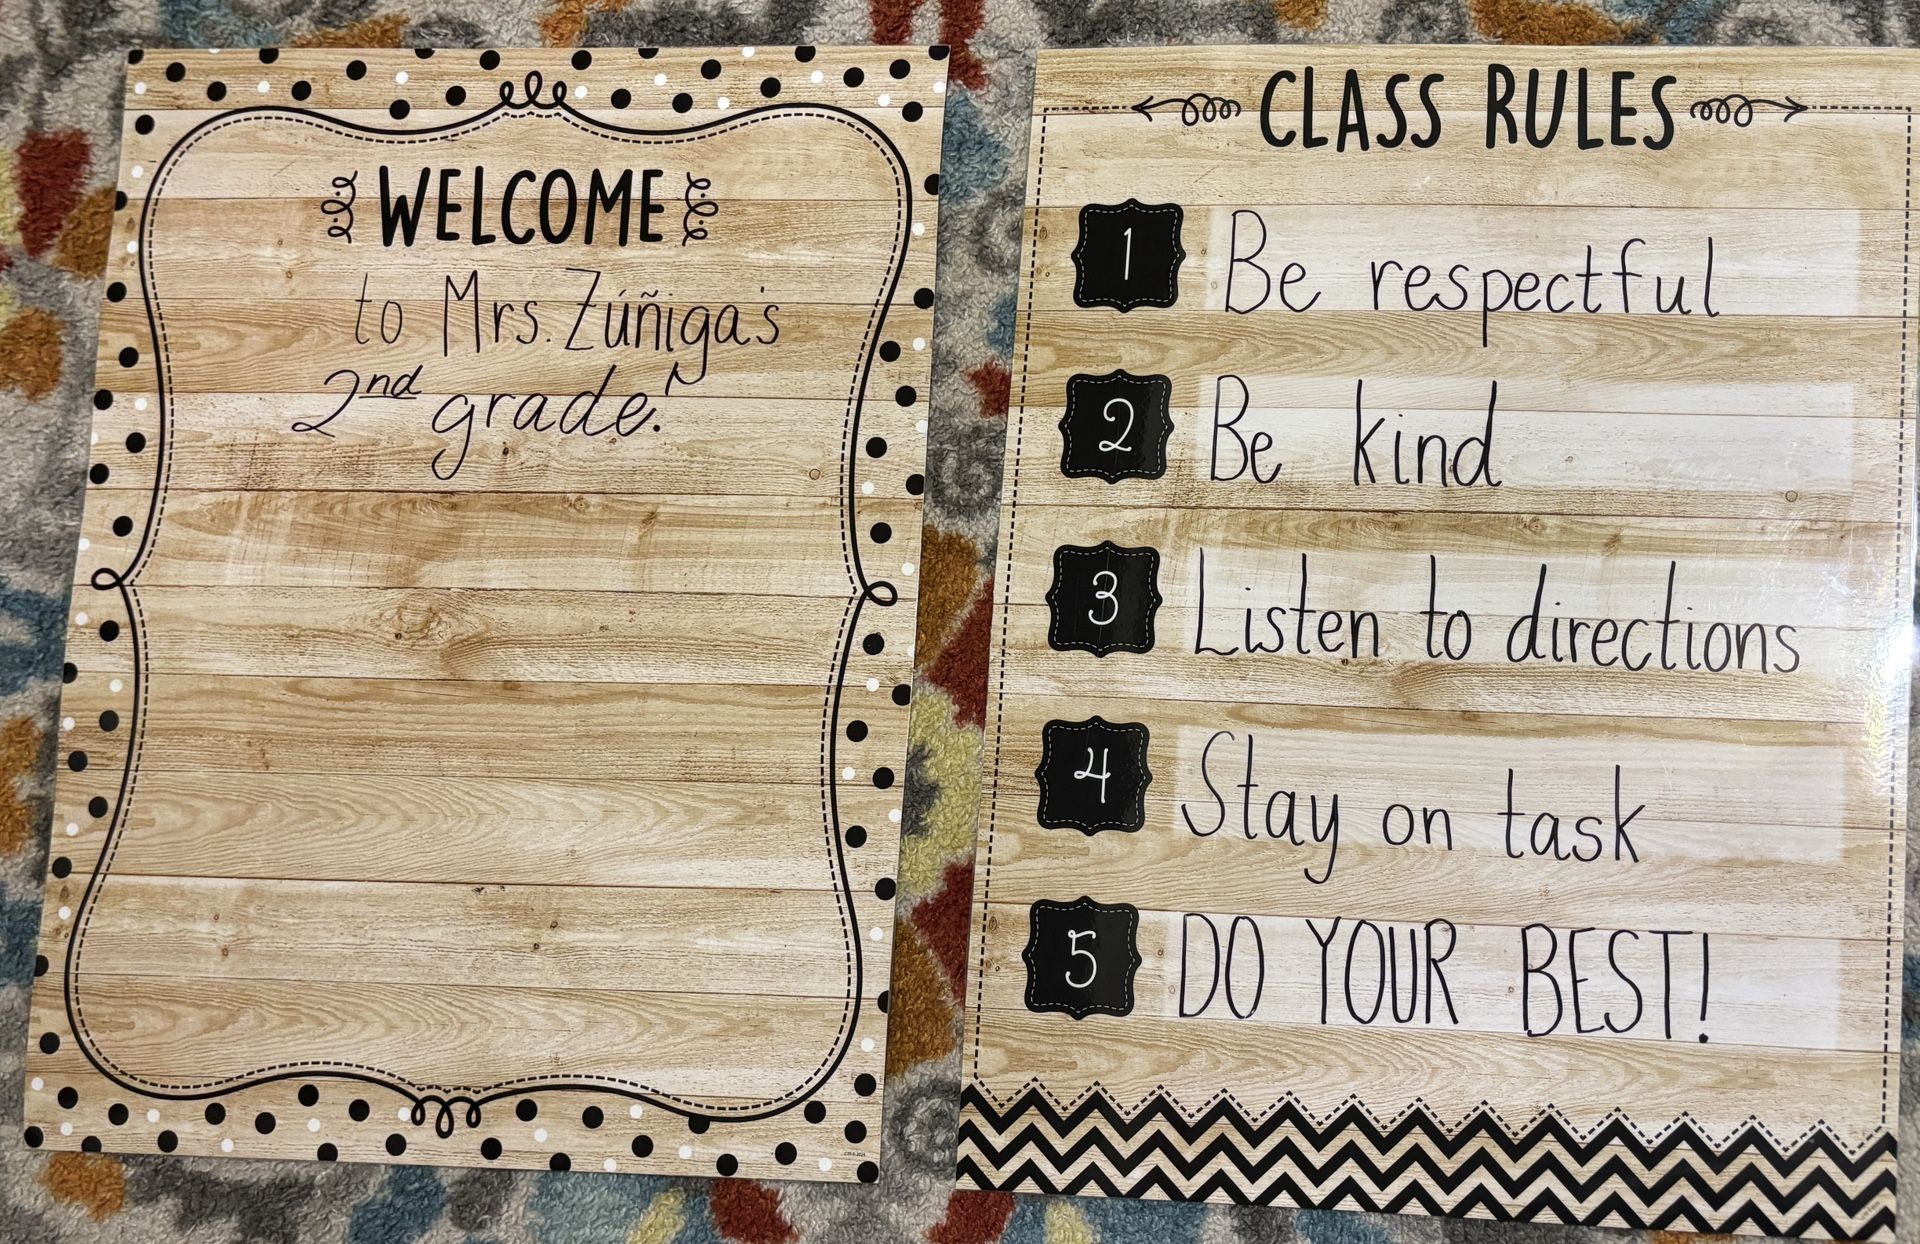 WELCOME
to Mrs. Zúñiga's
2nd grade!
CLASS RULES
1 Be respectful
2 Be kind
3 Listen to directions
4 Stay on task
5 DO YOUR BEST!